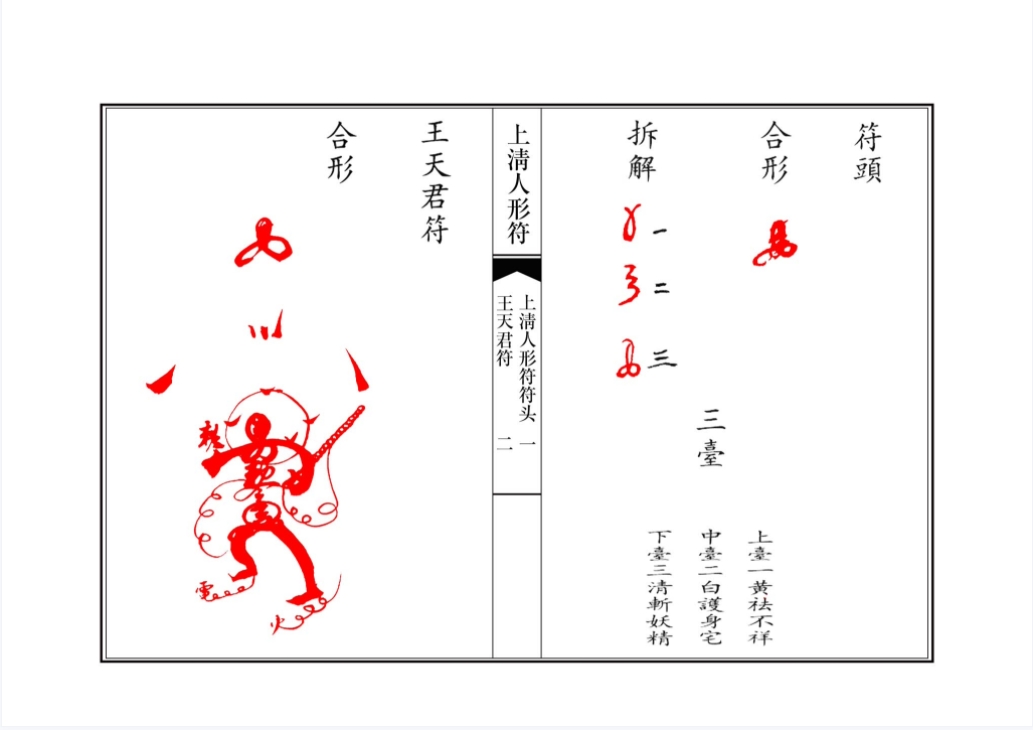 符頭
合形
拆解
一
二
三
三臺
上臺一黃祛不祥
中臺二白護身宅
下臺三清斬妖精
上清人形符
上清人形符符头 一
王天君符 二
王天君符
合形
電
火